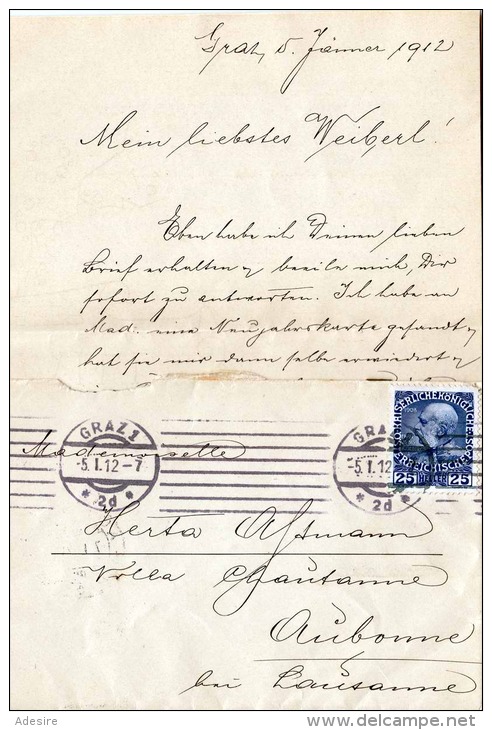 Graz, 5. Jänner 1912
Mein liebstes Weiberl!
Eben habe ich Deinen lieben
Brief erhalten & beeile mich, Dir
sofort zu antworten. Ich habe an
Mad. eine Neujahrskarte gesandt &
hat sie mir dann selbe erwiedert &
GRAZ 1
-5.I.12-7
* 2d *
GRAZ
-5.I.12
* 2d *
1908
KAISERLICHE KÖNIGLICHE
ÖSTERREICHISCHE POST
25 HELLER 25
Mademoiselle
Herta
Villa Chautanne
Aubonne
bei Lausanne
Adesire
delcampe.net